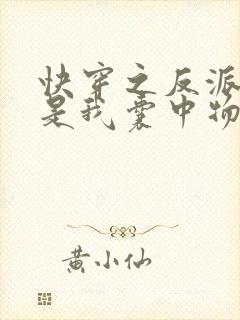 快穿之反派
是我囊中物
黄小仙